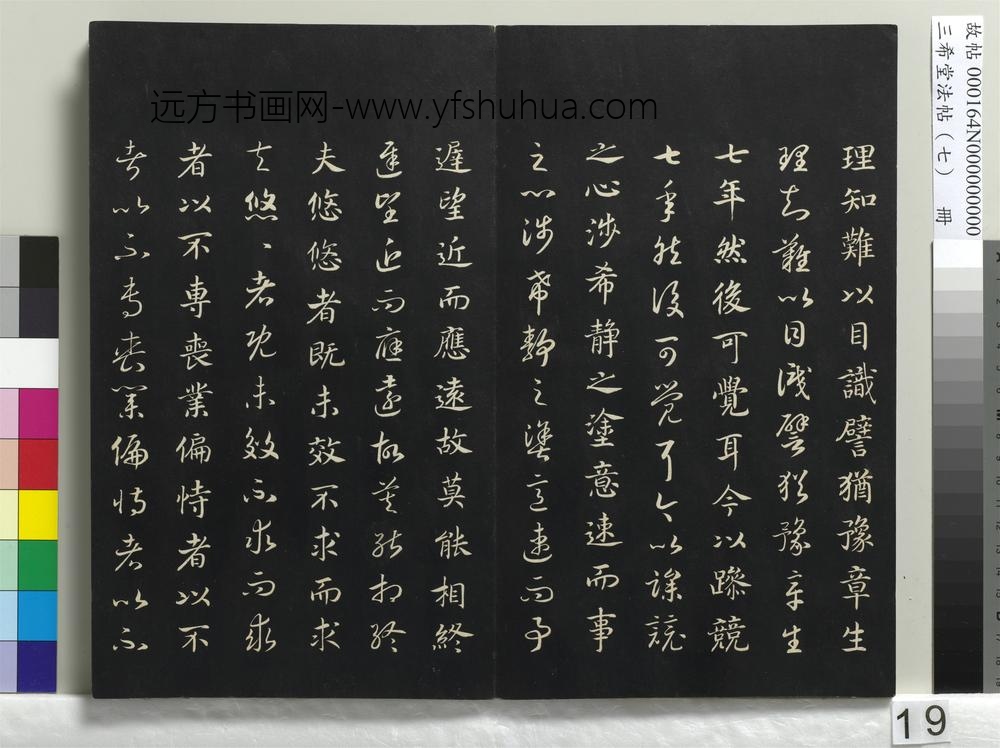 远方书画网-www.yfshuhua.com
故帖 000164N000000000
三希堂法帖（七） 册
理知難以目識譬猶豫章生
理知難以目識譬猶豫章生
七年然後可覺耳今以躁競
七年然後可覺耳今以躁競
之心涉希静之塗意速而事
之心涉希静之塗意速而事
遲望近而應遠故莫能相終
遲望近而應遠故莫能相終
夫悠悠者既未效不求而求
夫悠〻者既未效不求而求
者以不專喪業偏恃者以不
者以不專喪業偏恃者以不
19